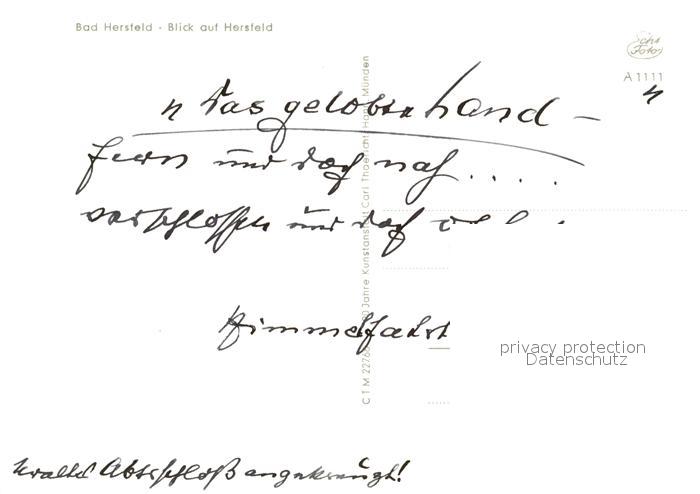 Bad Hersfeld · Blick auf Hersfeld
Schö Fotos
A 1111
„ Das gelobte Land –
fern und doch nah .....
verschlossen und doch
Himmelfahrt
C T M 22766 Jahre Kunstanstalt Carl Thoericht Hann. Münden
privacy protection
Datenschutz
angekreuzt!